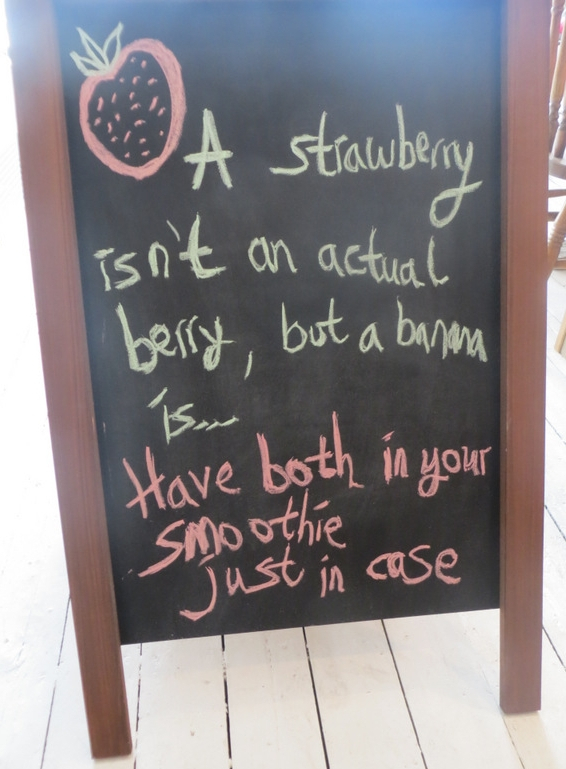 A strawberry
isn't an actual
berry, but a banana
is...
Have both in your
smoothie
just in case